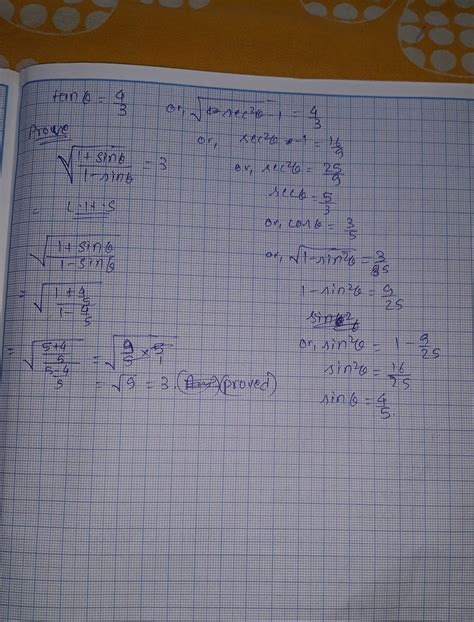 tanθ = 4/3
Prove
√((1+sinθ)/(1-sinθ)) = 3
L.H.S
√((1+sinθ)/(1-sinθ))
= √((1+4/5)/(1-4/5))
= √(((5+4)/5)/((5-4)/5)) = √(9/5 × 5/1)
= √9 = 3. (proved)
or, √(sec²θ-1) = 4/3
or, sec²θ-1 = 16/9
or, sec²θ = 25/9
secθ = 5/3
or, cosθ = 3/5
or, √(1-sin²θ) = 3/5
1-sin²θ = 9/25
or, sin²θ = 1-9/25
sin²θ = 16/25
sinθ = 4/5.